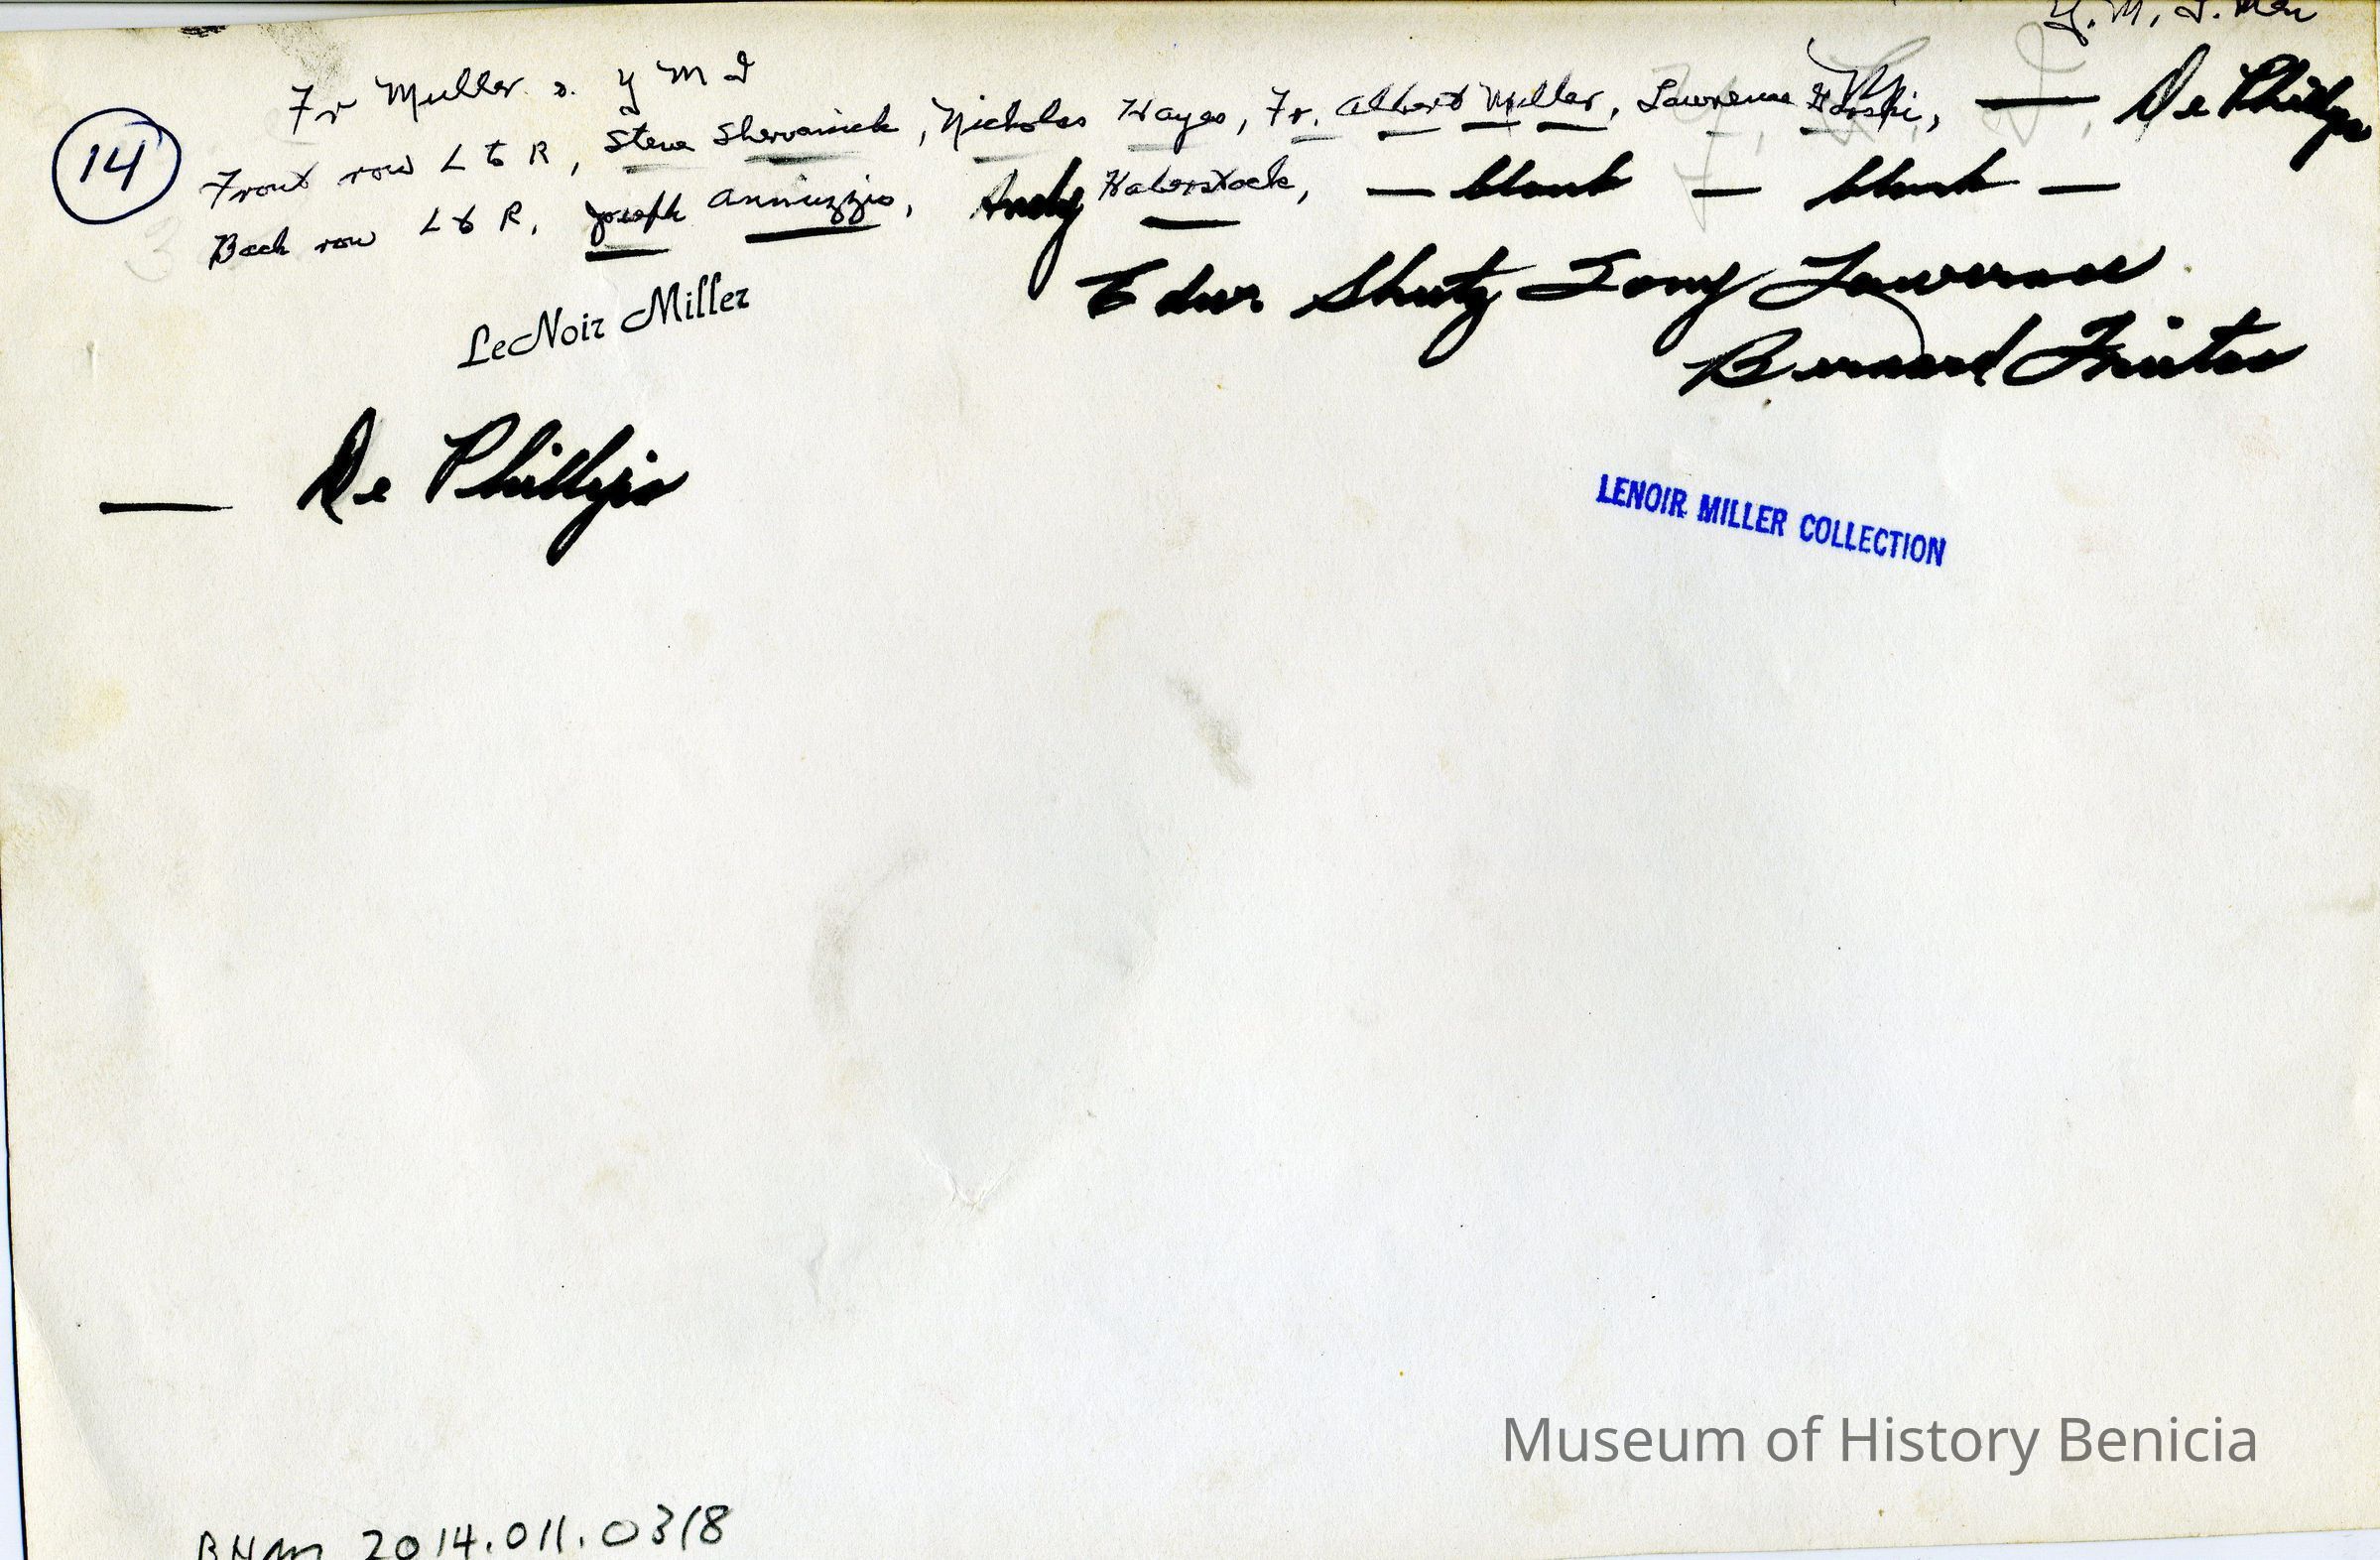 Y. M. I. Men
Fr Muller s. Y M I
14
Front row L to R, Steve Shervanick, Nicholas Hayes, Fr. Albert Muller, Lawrence — De Phillips
Back row L to R, Joseph Annuzzio, Andy Haberstock, — blank — blank —
Shutz Tony Lawrence
Bernard
LeNoir Miller
— De Phillips
LENOIR MILLER COLLECTION
Museum of History Benicia
BHM 2014.011.0318